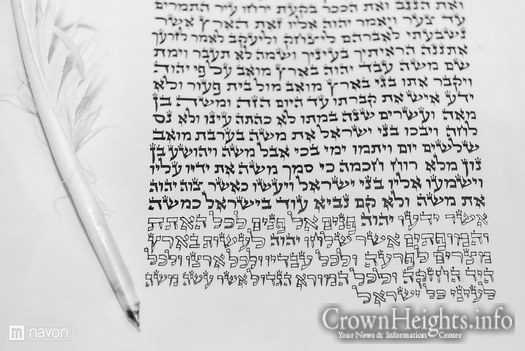 ואת הנגב ואת הככר בקעת ירחו עיר התמרים
עד צער ויאמר יהוה אליו זאת הארץ אשר
נשבעתי לאברהם ליצחק וליעקב לאמר לזרעך
אתננה הראיתיך בעיניך ושמה לא תעבר וימת
שם משה עבד יהוה בארץ מואב על פי יהוה
ויקבר אתו בגי בארץ מואב מול בית פעור ולא
ידע איש את קברתו עד היום הזה ומשה בן
מאה ועשרים שנה במתו לא כהתה עינו ולא נס
לחה ויבכו בני ישראל את משה בערבת מואב
שלשים יום ויתמו ימי בכי אבל משה ויהושע בן
נון מלא רוח חכמה כי סמך משה את ידיו עליו
וישמעו אליו בני ישראל ויעשו כאשר צוה יהוה
את משה ולא קם נביא עוד בישראל כמשה
אשר ידעו יהוה פנים אל פנים לכל האתת
והמופתים אשר שלחו יהוה לעשות בארץ
מצרים לפרעה ולכל עבדיו ולכל ארצו ולכל
היד החזקה ולכל המורא הגדול אשר עשה משה
לעיני כל ישראל
CrownHeights.info
Your News & Information Center
navon